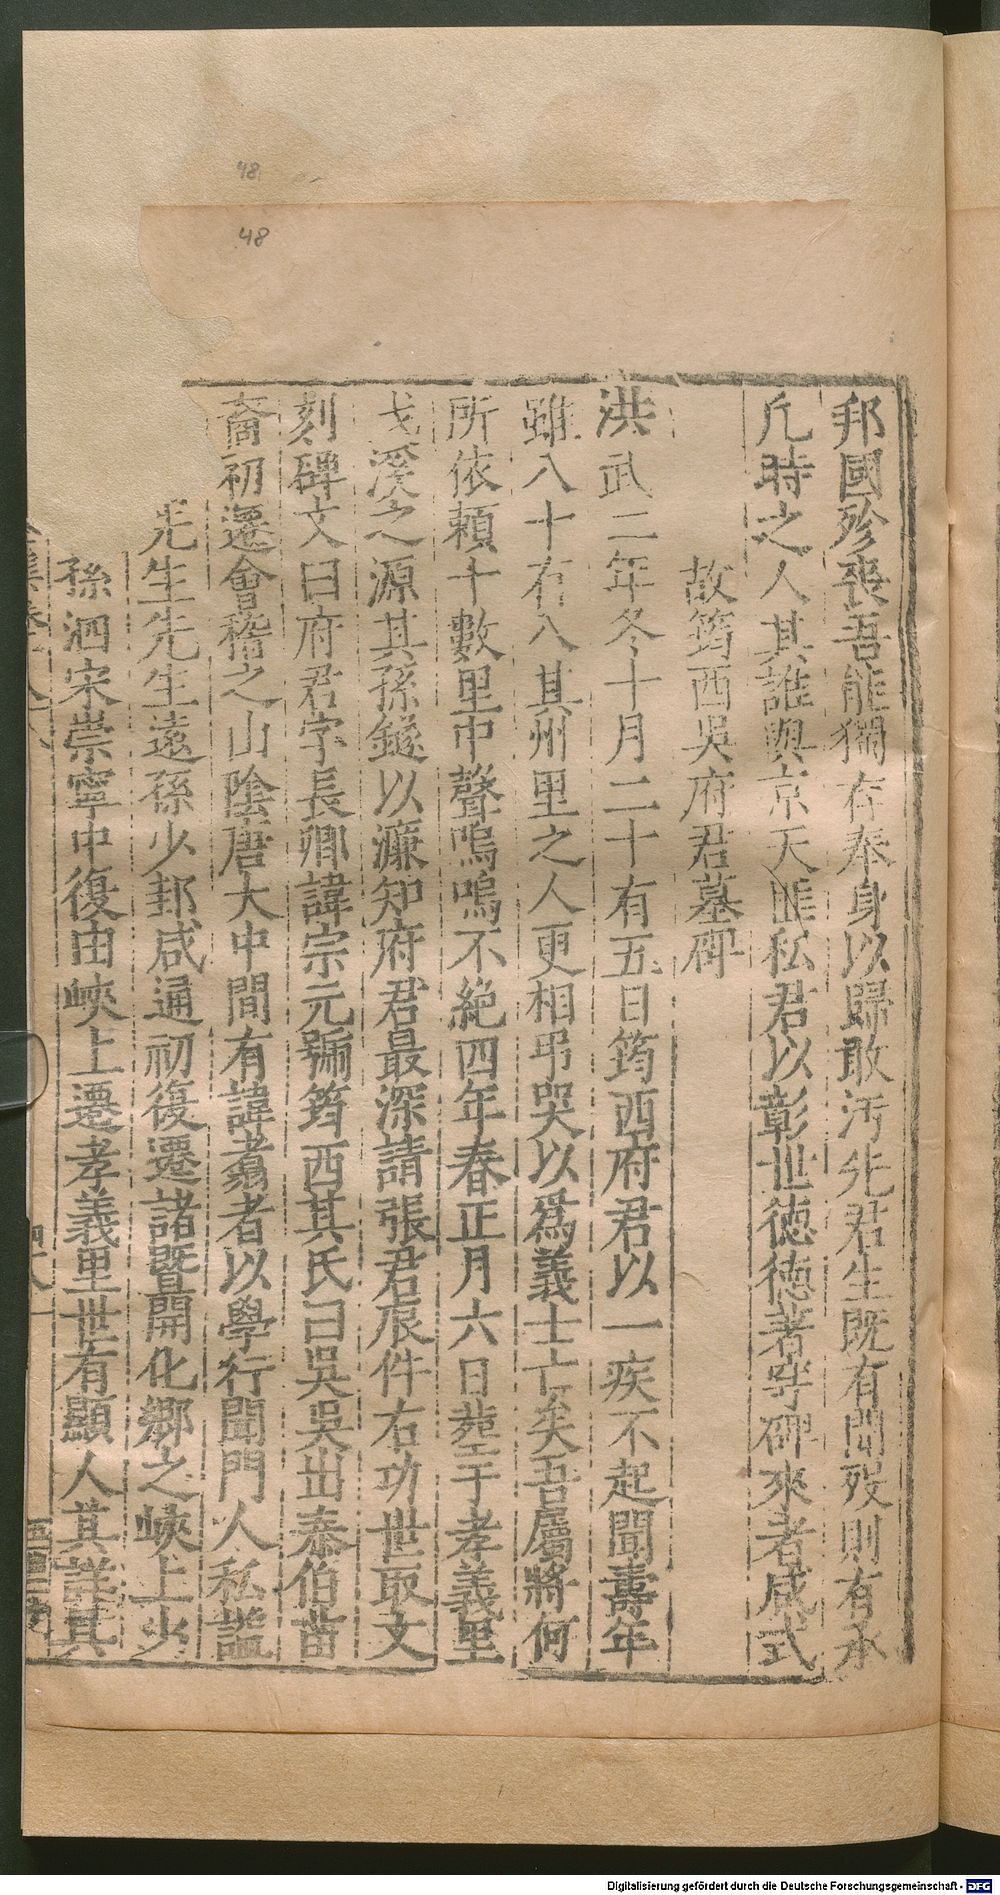 邦國殄喪吾能獨存奉身以歸敢汚先君生既有聞歿則有承
凡時之人其誰與京天匪私君以彰世德德著守碑來者咸式
故筠西吳府君墓碑
洪武二年冬十月二十有五日筠西府君以一疾不起聞壽年
雖八十有八其州里之人更相弔哭以爲義士亡矣吾屬將何
所依賴十數里中聲嗚嗚不絶四年春正月六日塟于孝義里
戈溪之源其孫鐩以濂知府君最深請張君辰件右功世取文
刻碑文曰府君字長卿諱宗元號筠西其氏曰吳吳出泰伯苗
裔初遷會稽之山陰唐大中間有諱翥者以學行聞門人私謚
先生先生遠孫少邽咸通初復遷諸暨開化鄉之峽上少
孫泗宋崇寧中復由峽上遷孝義里世有顯人其詳其
48
48
Digitalisierung gefördert durch die Deutsche Forschungsgemeinschaft - DFG